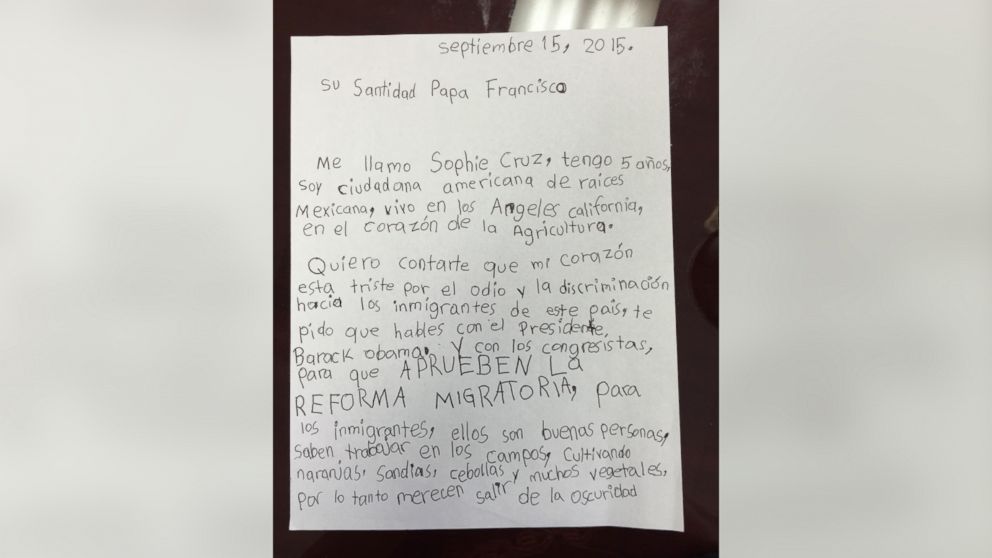 septiembre 15, 2015.
su Santidad Papa Francisco
Me llamo Sophie Cruz, tengo 5 años,
soy ciudadana americana de raices
Mexicana, vivo en los Angeles california,
en el corazón de la Agricultura.
Quiero contarte que mi corazón
esta triste por el odio y la discriminación
hacia los inmigrantes de este pais, te
pido que hables con el Presidente,
Barack obama, y con los congresistas,
para que APRUEBEN La
REFORMA MIGRATORIA, para
los inmigrantes, ellos son buenas personas,
saben trabajar en los campos, cultivando
naranjas, sandias, cebollas y muchos vegetales,
por lo tanto merecen salir de la oscuridad